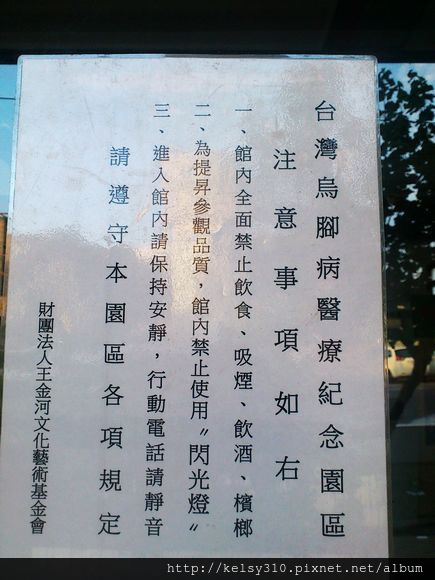 台灣烏腳病醫療紀念園區
注意事項如右
一、館內全面禁止飲食、吸煙、飲酒、檳榔
二、為提昇參觀品質，館內禁止使用〝閃光燈〞
三、進入館內請保持安靜，行動電話請靜音
請遵守本園區各項規定
財團法人王金河文化藝術基金會
http://kelsy310.pixnet.net/album